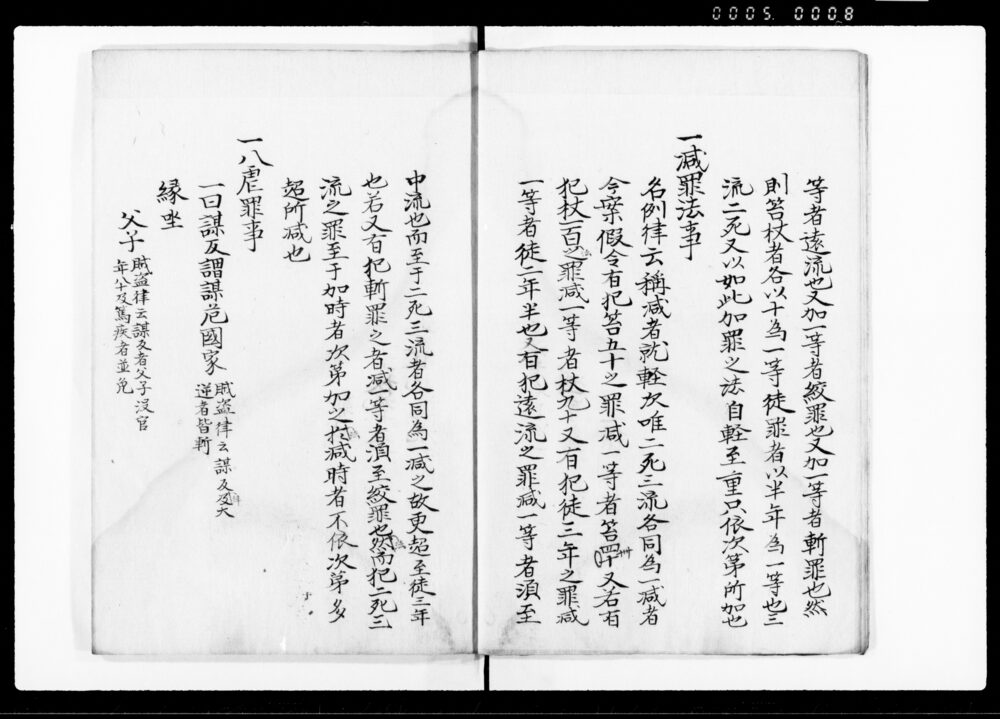 0005 0008
等者遠流也又加一等者絞罪也又加一等者斬罪也然
則笞杖者各以十為一等徒罪者以半年為一等也三
流二死又以如此加罪之法自軽至重只依次第所加也
一減罪法事
名例律云稱減者就軽次唯二死三流各同為一減者
今案假令有犯笞五十之罪減一等者笞四十又若有
犯杖百之罪減一等者杖九十又有犯徒三年之罪減
一等者徒二年半也又有犯遠流之罪減一等者須至
中流也而至于二死三流者各同為一減之故更超至徒三年
也若又有犯斬罪之者減一等者須至絞罪也然而犯二死三
流之罪至于加時者次第加之於減時者不依次第多
超所減也
一八虐罪事
一曰謀反謂謀危國家
賊盗律云謀反及大
逆者皆斬
縁坐
父子
賊盗律云謀反者父子没官
年八十及篤疾者並免